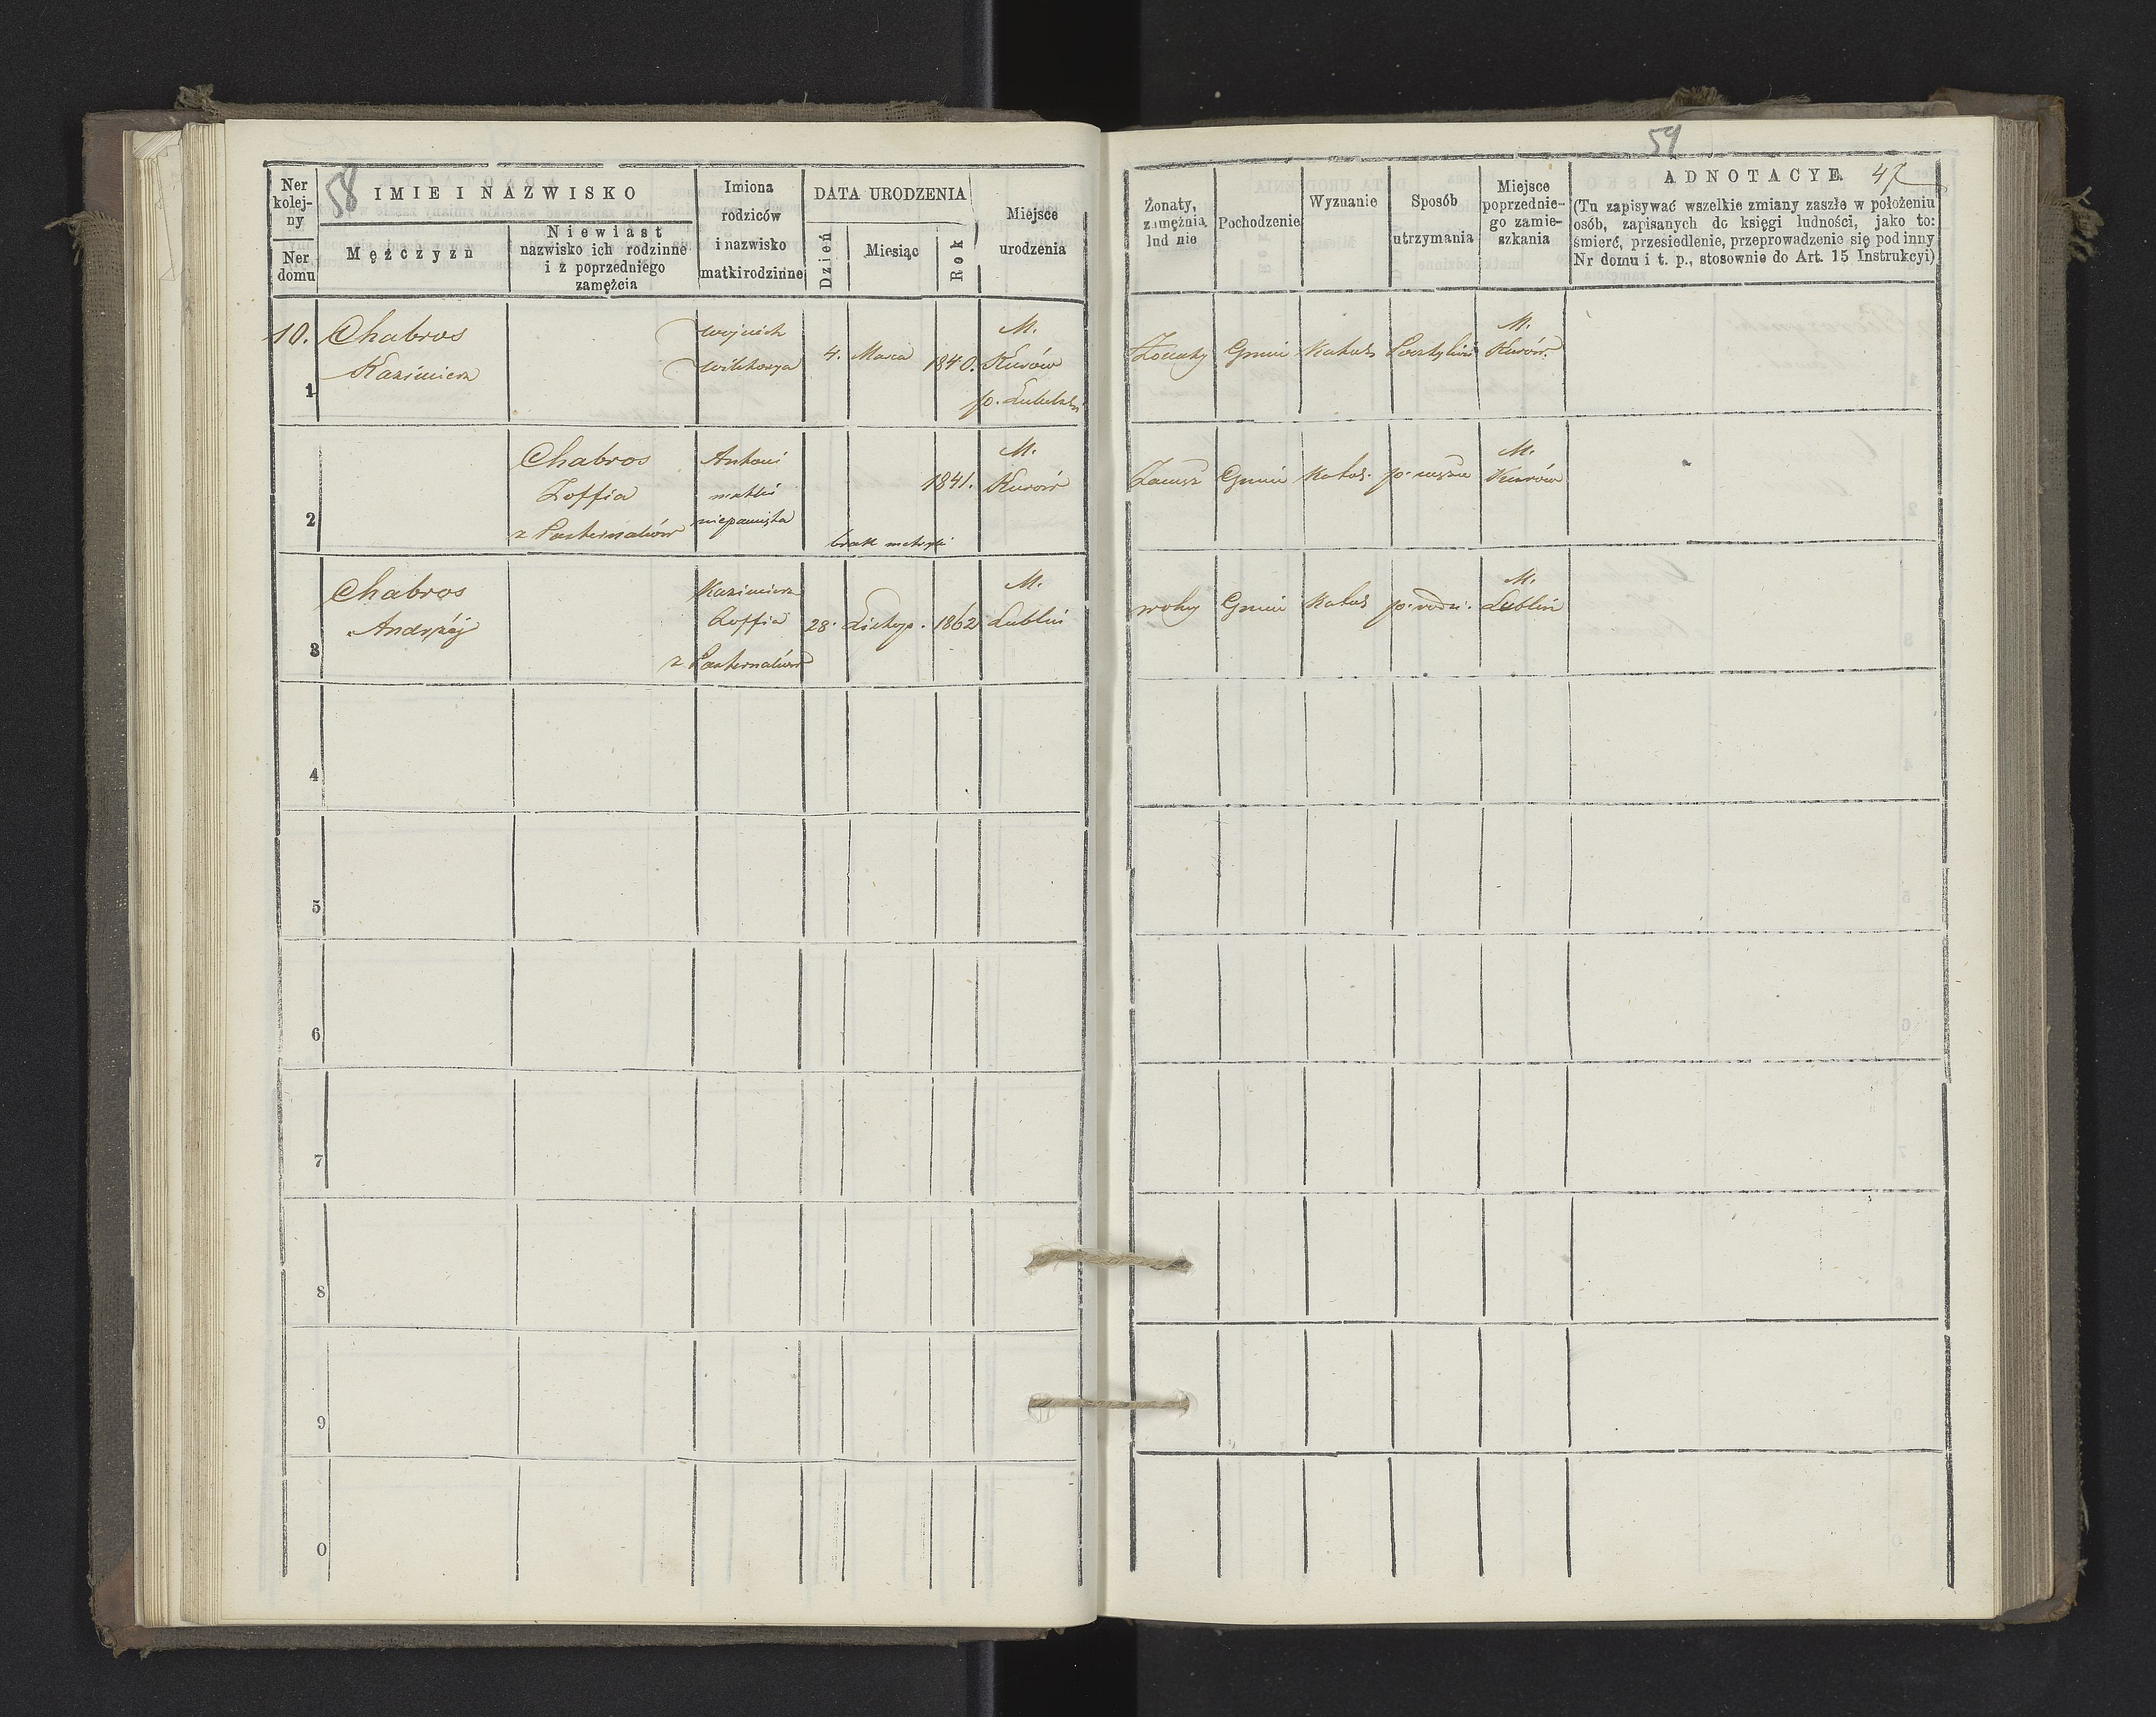 58
Ner kolejny
Ner domu
IMIE I NAZWISKO
Mężczyzn
Niewiast
nazwisko ich rodzinne
i z poprzedniego
zamężcia
Imiona
rodziców
i nazwisko
matki rodzinne
DATA URODZENIA
Dzień
Miesiąc
Rok
Miejsce
urodzenia
10.
1
Chabros
Kazimierz
Wojciech
4.
Marca
1840.
M.
Kurów
p. Lubelski
2
Chabros
Zoffia
z Pasternaków
Antoni
matki
niepamięta
brak metryki
1841.
M.
Kurów
3
Chabros
Andrzéj
Kazimierz
Zoffia
z Pasternaków
28.
Listop.
1862
M.
Lublin
4
5
6
7
8
9
0
59
47
Żonaty,
zamężnia,
lud nie
Pochodzenie
Wyznanie
Sposób
utrzymania
Miejsce
poprzednie-
go zamie-
szkania
ADNOTACYE.
(Tu zapisywać wszelkie zmiany zaszłe w położeniu
osób, zapisanych do księgi ludności, jako to:
śmierć, przesiedlenie, przeprowadzenie się pod inny
Nr domu i t. p., stosownie do Art. 15 Instrukcyi)
Żonaty
Gmin
Katol.
M.
Kurów.
Gmin
Katol.
p. mężu
M.
Kurów
wolny
Gmin
Katol
p. rodz.
M.
Lublin